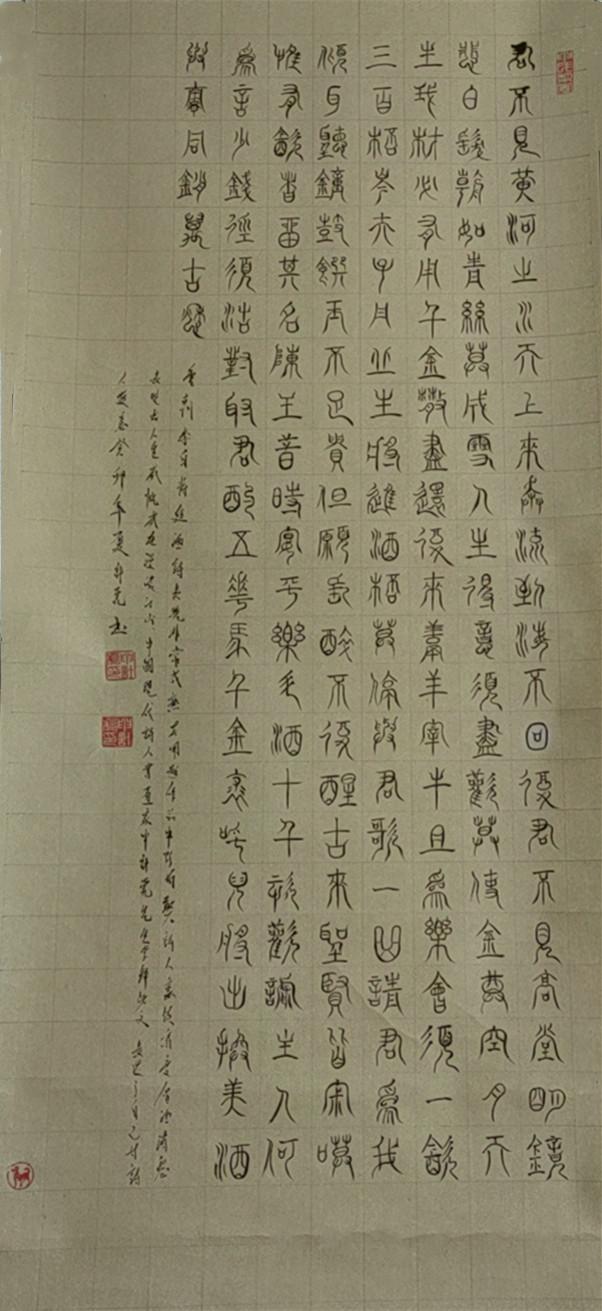 君不見黃河之水天上來奔流到海不回復君不見高堂明鏡
悲白髮朝如青絲暮成雪人生得意須盡歡莫使金尊空月天
生我材必有用千金散盡還復來羹羊宰牛且為樂會須一飲
三百杯岑夫子丹丘生將進酒杯莫停與君歌一曲請君為我
傾耳聽鐘鼓饌玉不足貴但願長醉不復醒古來聖賢皆寂寞
惟有飲者留其名陳王昔時宴平樂斗酒十千恣歡謔主人何
為言少錢徑須沽對取君酌五花馬千金裘呼兒將出換美酒
與爾同銷萬古愁
中國現代詩人
癸卯年夏